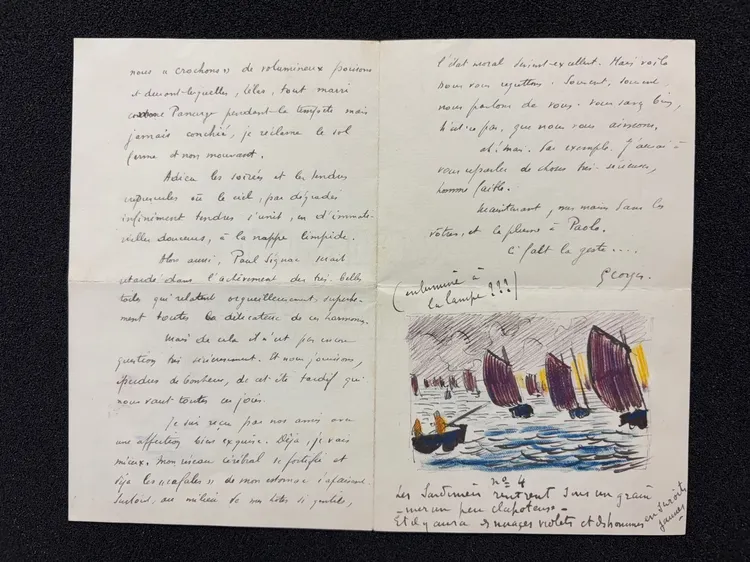 nous « crochons » de volumineux poissons
et devant lesquelles, hélas, tout marri
comme Panurge pendant la tempête mais
jamais conchié, je réclame le sol
ferme et non mouvant.
Adieu les soirées et les tendres
crépuscules où le ciel, par dégradés
infiniment tendres s'unit, en d'immaté-
rielles douceurs, à la nappe limpide.
Alors aussi, Paul Signac serait
retardé dans l'achèvement des très belles
toiles qui relatent orgueilleusement, superbe-
ment toutes la délicatesse de ces harmonies.
Mais de cela il n'est pas encore
question très sérieusement. Et nous jouissons,
éperdus de bonheur, de cet été tardif qui
nous vaut toutes ces joies.
Je suis reçu par nos amis avec
une affection bien exquise. Déjà, je vais
mieux, mon réseau cérébral se fortifie et
déjà les « rafales » de mon estomac s'apaisent.
Surtout, au milieu de nos hôtes si gentils,
l'état moral devient excellent. Mais voilà
nous vous regrettons. Souvent, souvent
nous parlons de vous. Vous savez bien,
n'est-ce pas, que nous vous aimons.
ah! mais. Par exemple. J'aurai à
vous reparler de choses très sérieuses,
homme faible.
Maintenant, mes mains dans les
vôtres, et la pleine à Paolo.
C'falt la geste....
Georges.
(enluminé à
la lampe ???)
n° 4
Les Sardiniers rentrent sous un grain
- mer un peu clapoteuse -
Et il y aura des nuages violets et des hommes
en suroîts
jaunes -